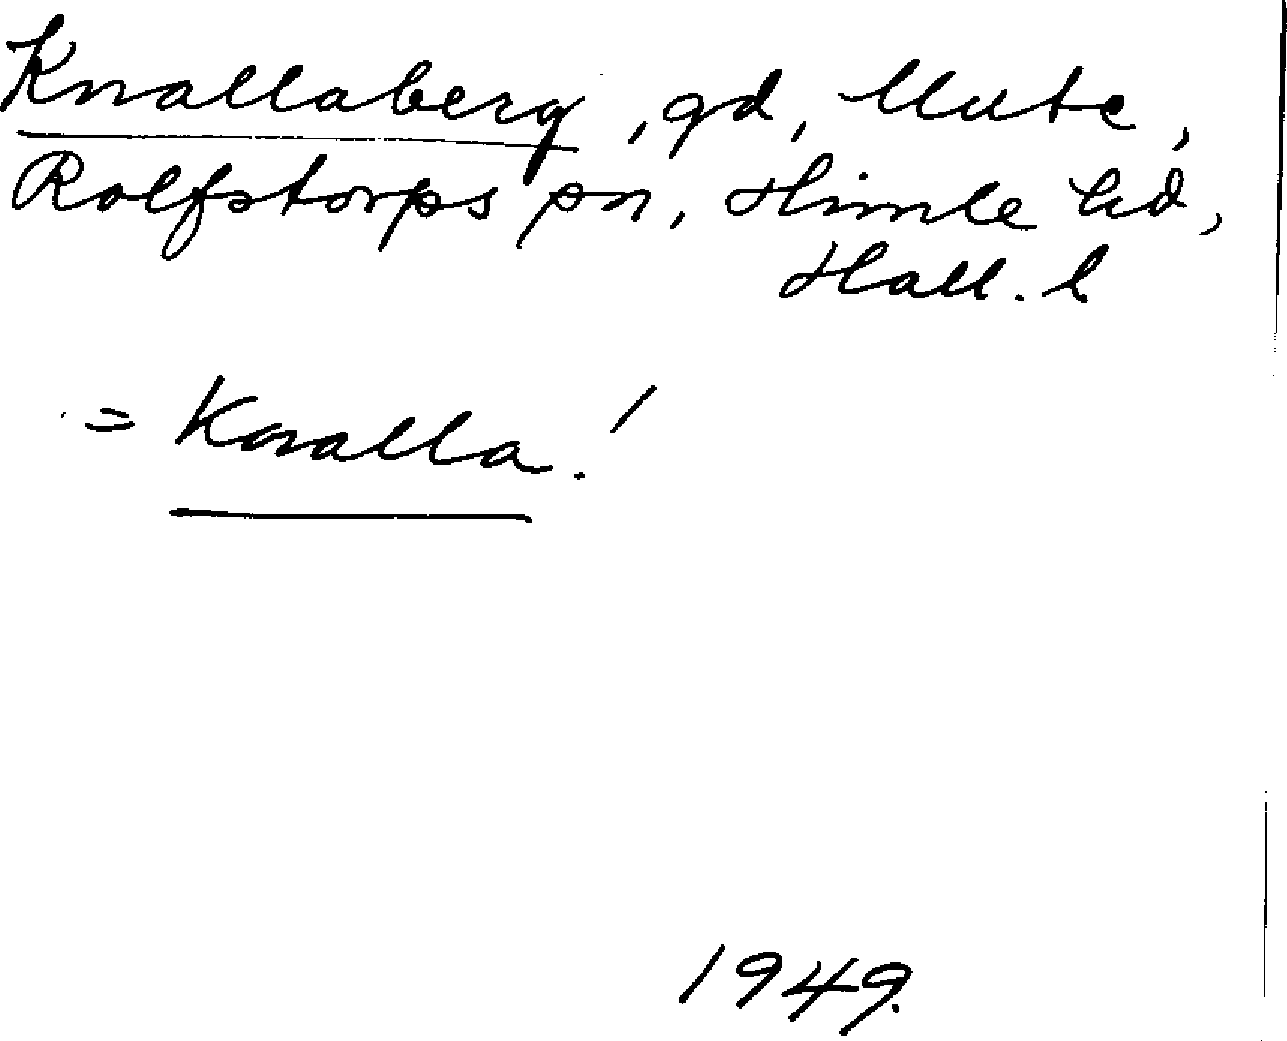 Knallaberg, gd, Mute,
Rolfstorps sn, Himle hd,
Hall. l
= Knalla. /
1949.